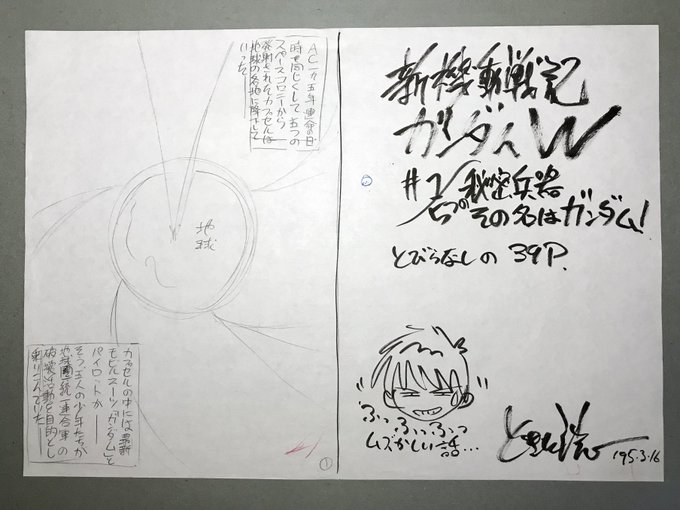 新機動戦記
ガンダムW
#1/秘密兵器
五つの その名はガンダム!
とびらなしの 39P.
ふっふっふっふっ
ムズかしい話…
ときた洸一
'95.3.16
AC一九五年 運命の日
時を同じくして 五つの
スペースコロニーから
発射されたカプセルは
地球の各地に降下して
いった
地球
カプセルの中には最新
モビルスーツ「ガンダム」と
パイロットが——
そう五人の少年たちが
地球圏統一連合軍の
破壊活動を目的とし
乗りこんでいた——
①